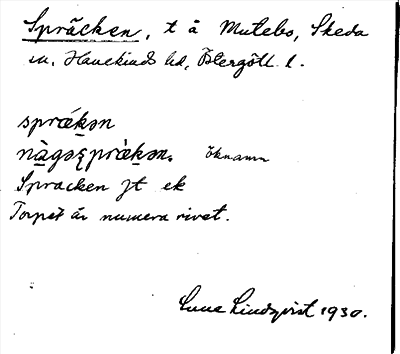 Spräcken, t å Mutebo, Skeda
sn, Hanekinds hd, Östergötl. l.
språ̄kən
nàgəsprà̄kən. öknamn
Spracken jt ek
Torpet är numera rivet.
Sune Lindqvist 1930.